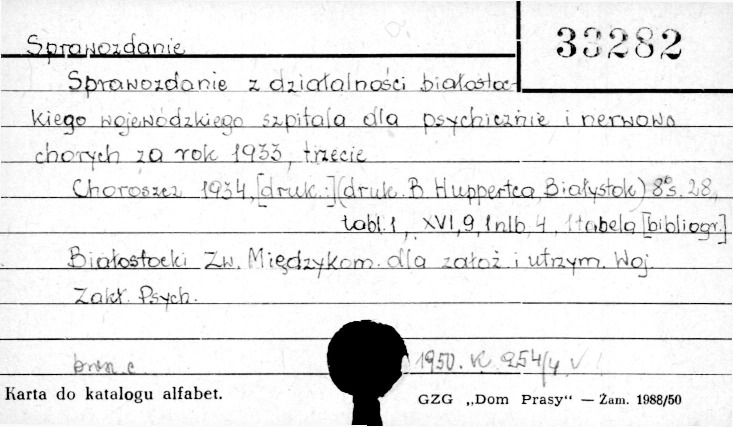 33282
Sprawozdanie
Sprawozdanie z działalności białostoc-
kiego wojewódzkiego szpitala dla psychicznie i nerwowo
chorych za rok 1933, trzecie
Choroszcz 1934, [druk.] (druk. B. Huppertca, Białystok) 8° s. 28,
tabl. 1, XVI, 9, 1 nlb, 4, 1 tabela [bibliogr.]
Białostocki Zw. Międzykom. dla założ. i utrzym. Woj.
Zakł. Psych.
1950. K. 254/4
Karta do katalogu alfabet.
GZG „Dom Prasy“ — Żam. 1988/50